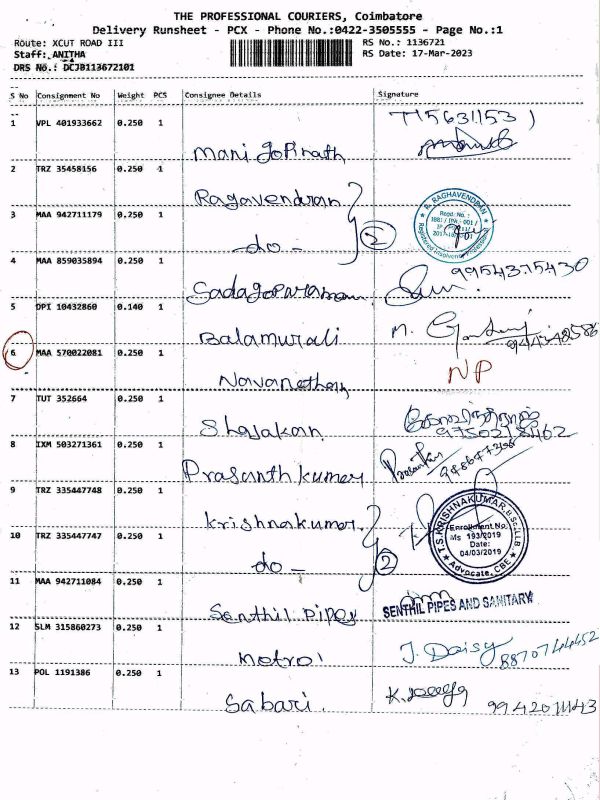 THE PROFESSIONAL COURIERS, Coimbatore
Delivery Runsheet - PCX - Phone No.:0422-3505555 - Page No.:1
Route: XCUT ROAD III RS No.: 1136721
Staff: ANITHA RS Date: 17-Mar-2023
DRS No.: DCJB113672101
S No Consignment No Weight PCS Consignee Details Signature
1 VPL 401933662 0.250 1 Mani Gopinath
2 TRZ 35458156 0.250 1 Ragavendran
3 MAA 942711179 0.250 1 -do- 2
R. RAGHAVENDRAN
Registered Insolvency Professional
4 MAA 859035894 0.250 1 9954375430
5 DPI 10432860 0.140 1 Balamurali M.
6 MAA 570022081 0.250 1 Navanethan NP
7 TUT 352664 0.250 1 Shajakan
8 IXM 503271361 0.250 1 Prasanth kumer
9 TRZ 335447748 0.250 1 Krishnakumer
10 TRZ 335447747 0.250 1 -do- 2
T.S. KRISHNAKUMAR, B.Sc., LLB
Enrollment No.
Ms 193/2019
Date:
04/03/2019
Advocate, CBE
11 MAA 942711084 0.250 1 Senthil Pipes SENTHIL PIPES AND SANITARY
12 SLM 315860273 0.250 1 J. Daisy 8870744452
13 POL 1191386 0.250 1 Sabari. 9942011143